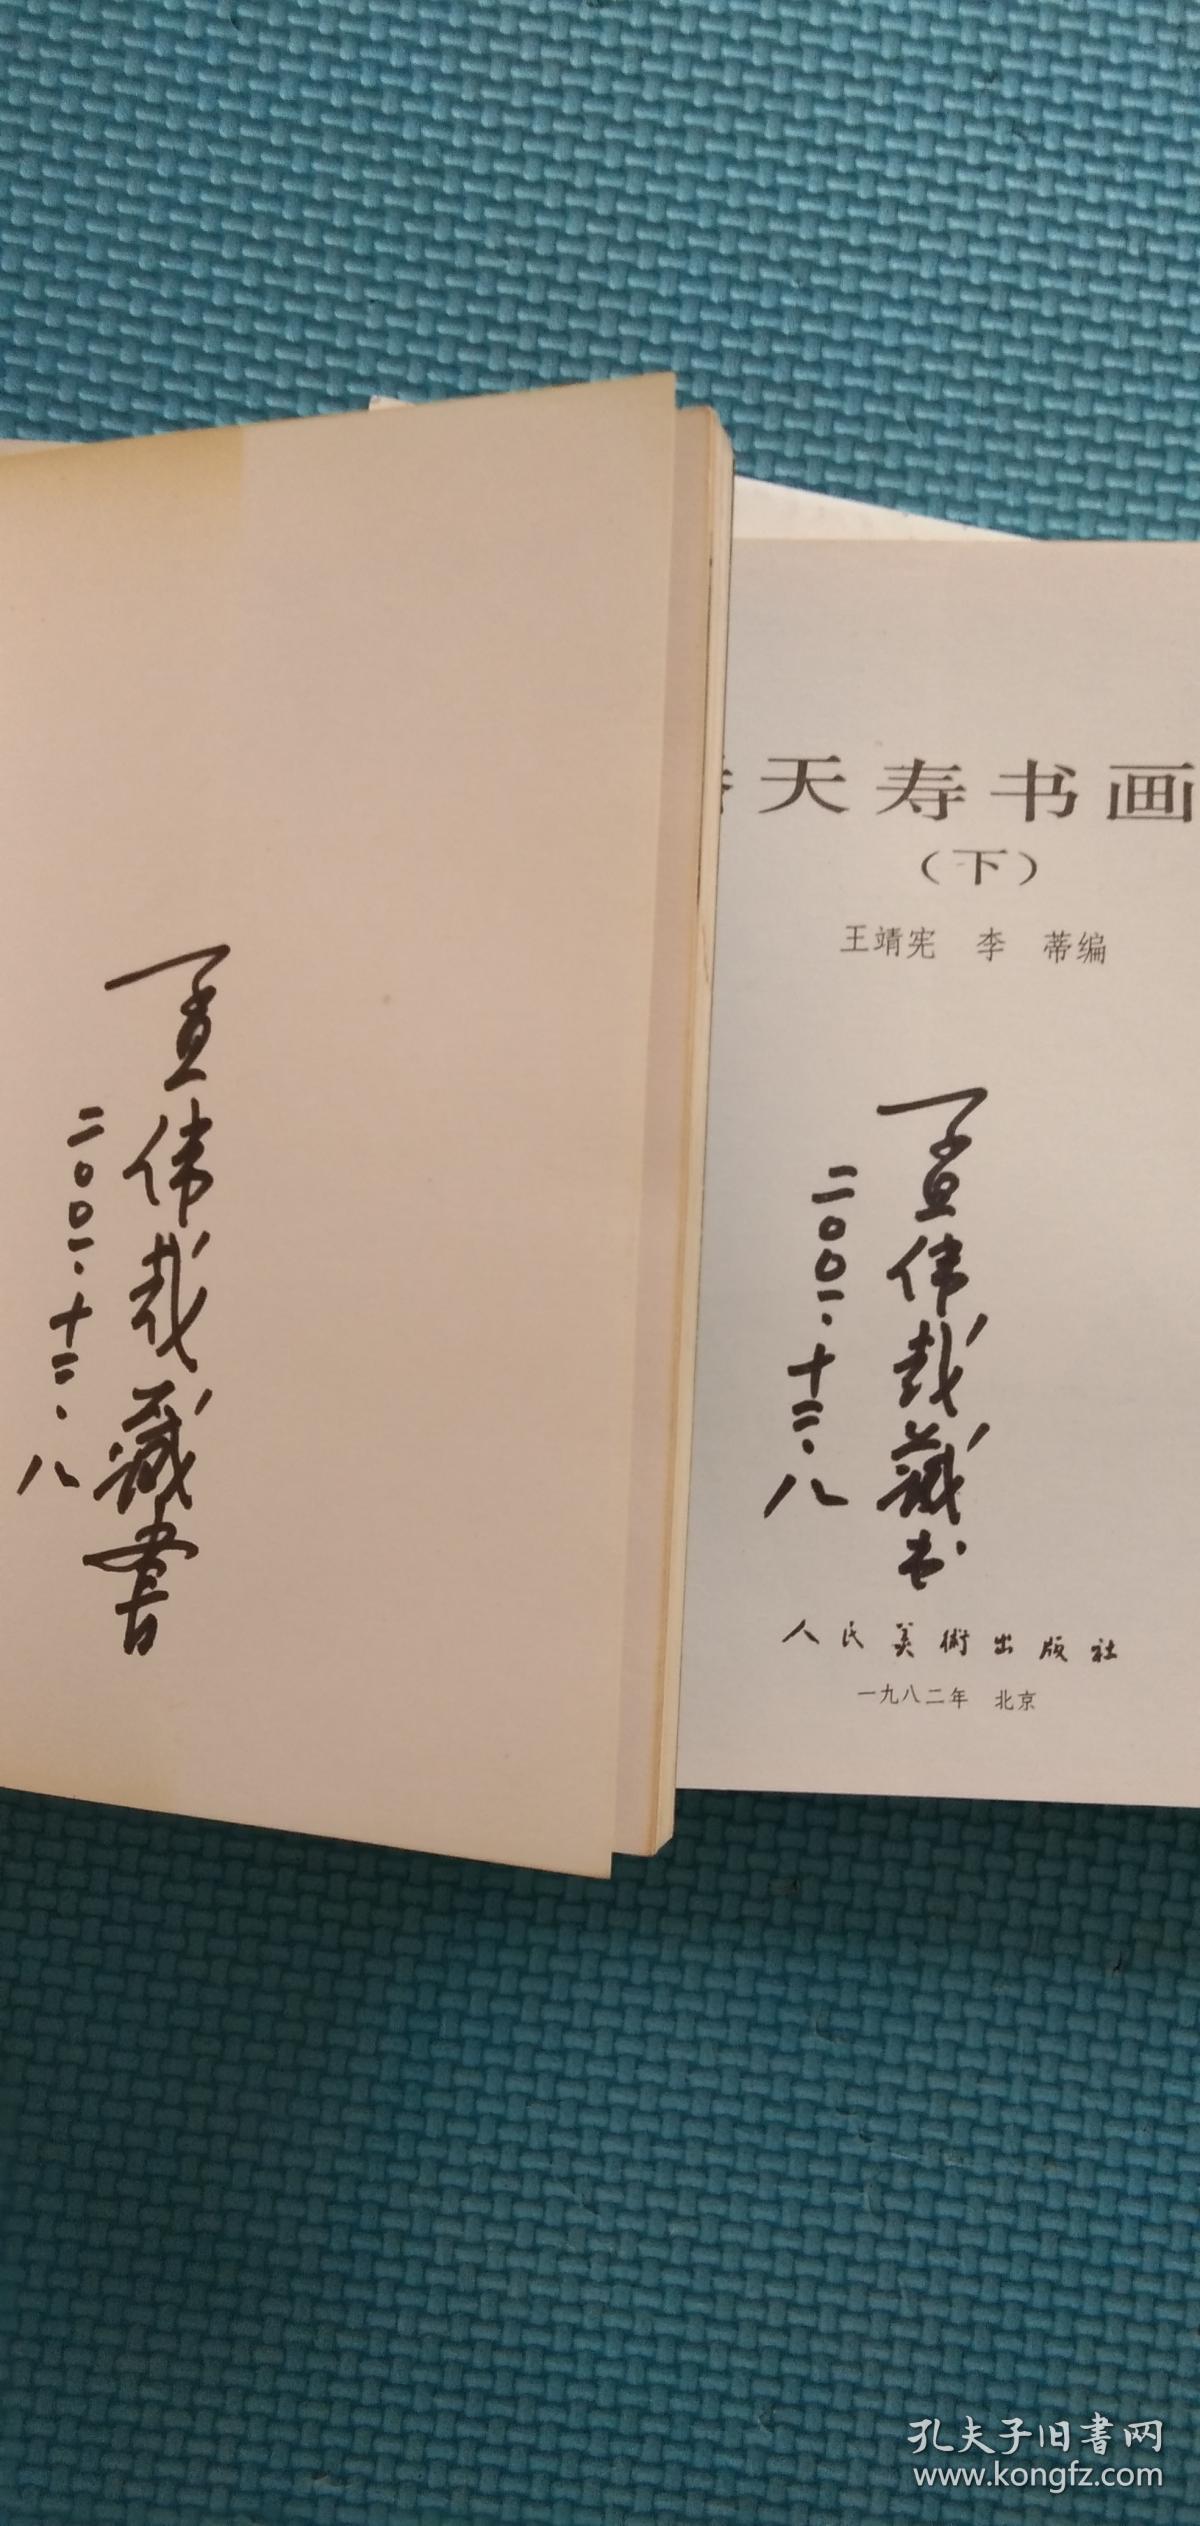 伟哉藏書
二〇〇一.十二.八
天寿书画
（下）
王靖宪 李 蒂编
伟哉藏书
二〇〇一.十二.八
人民美術出版社
一九八二年 北京
孔夫子旧書网
www.kongfz.com